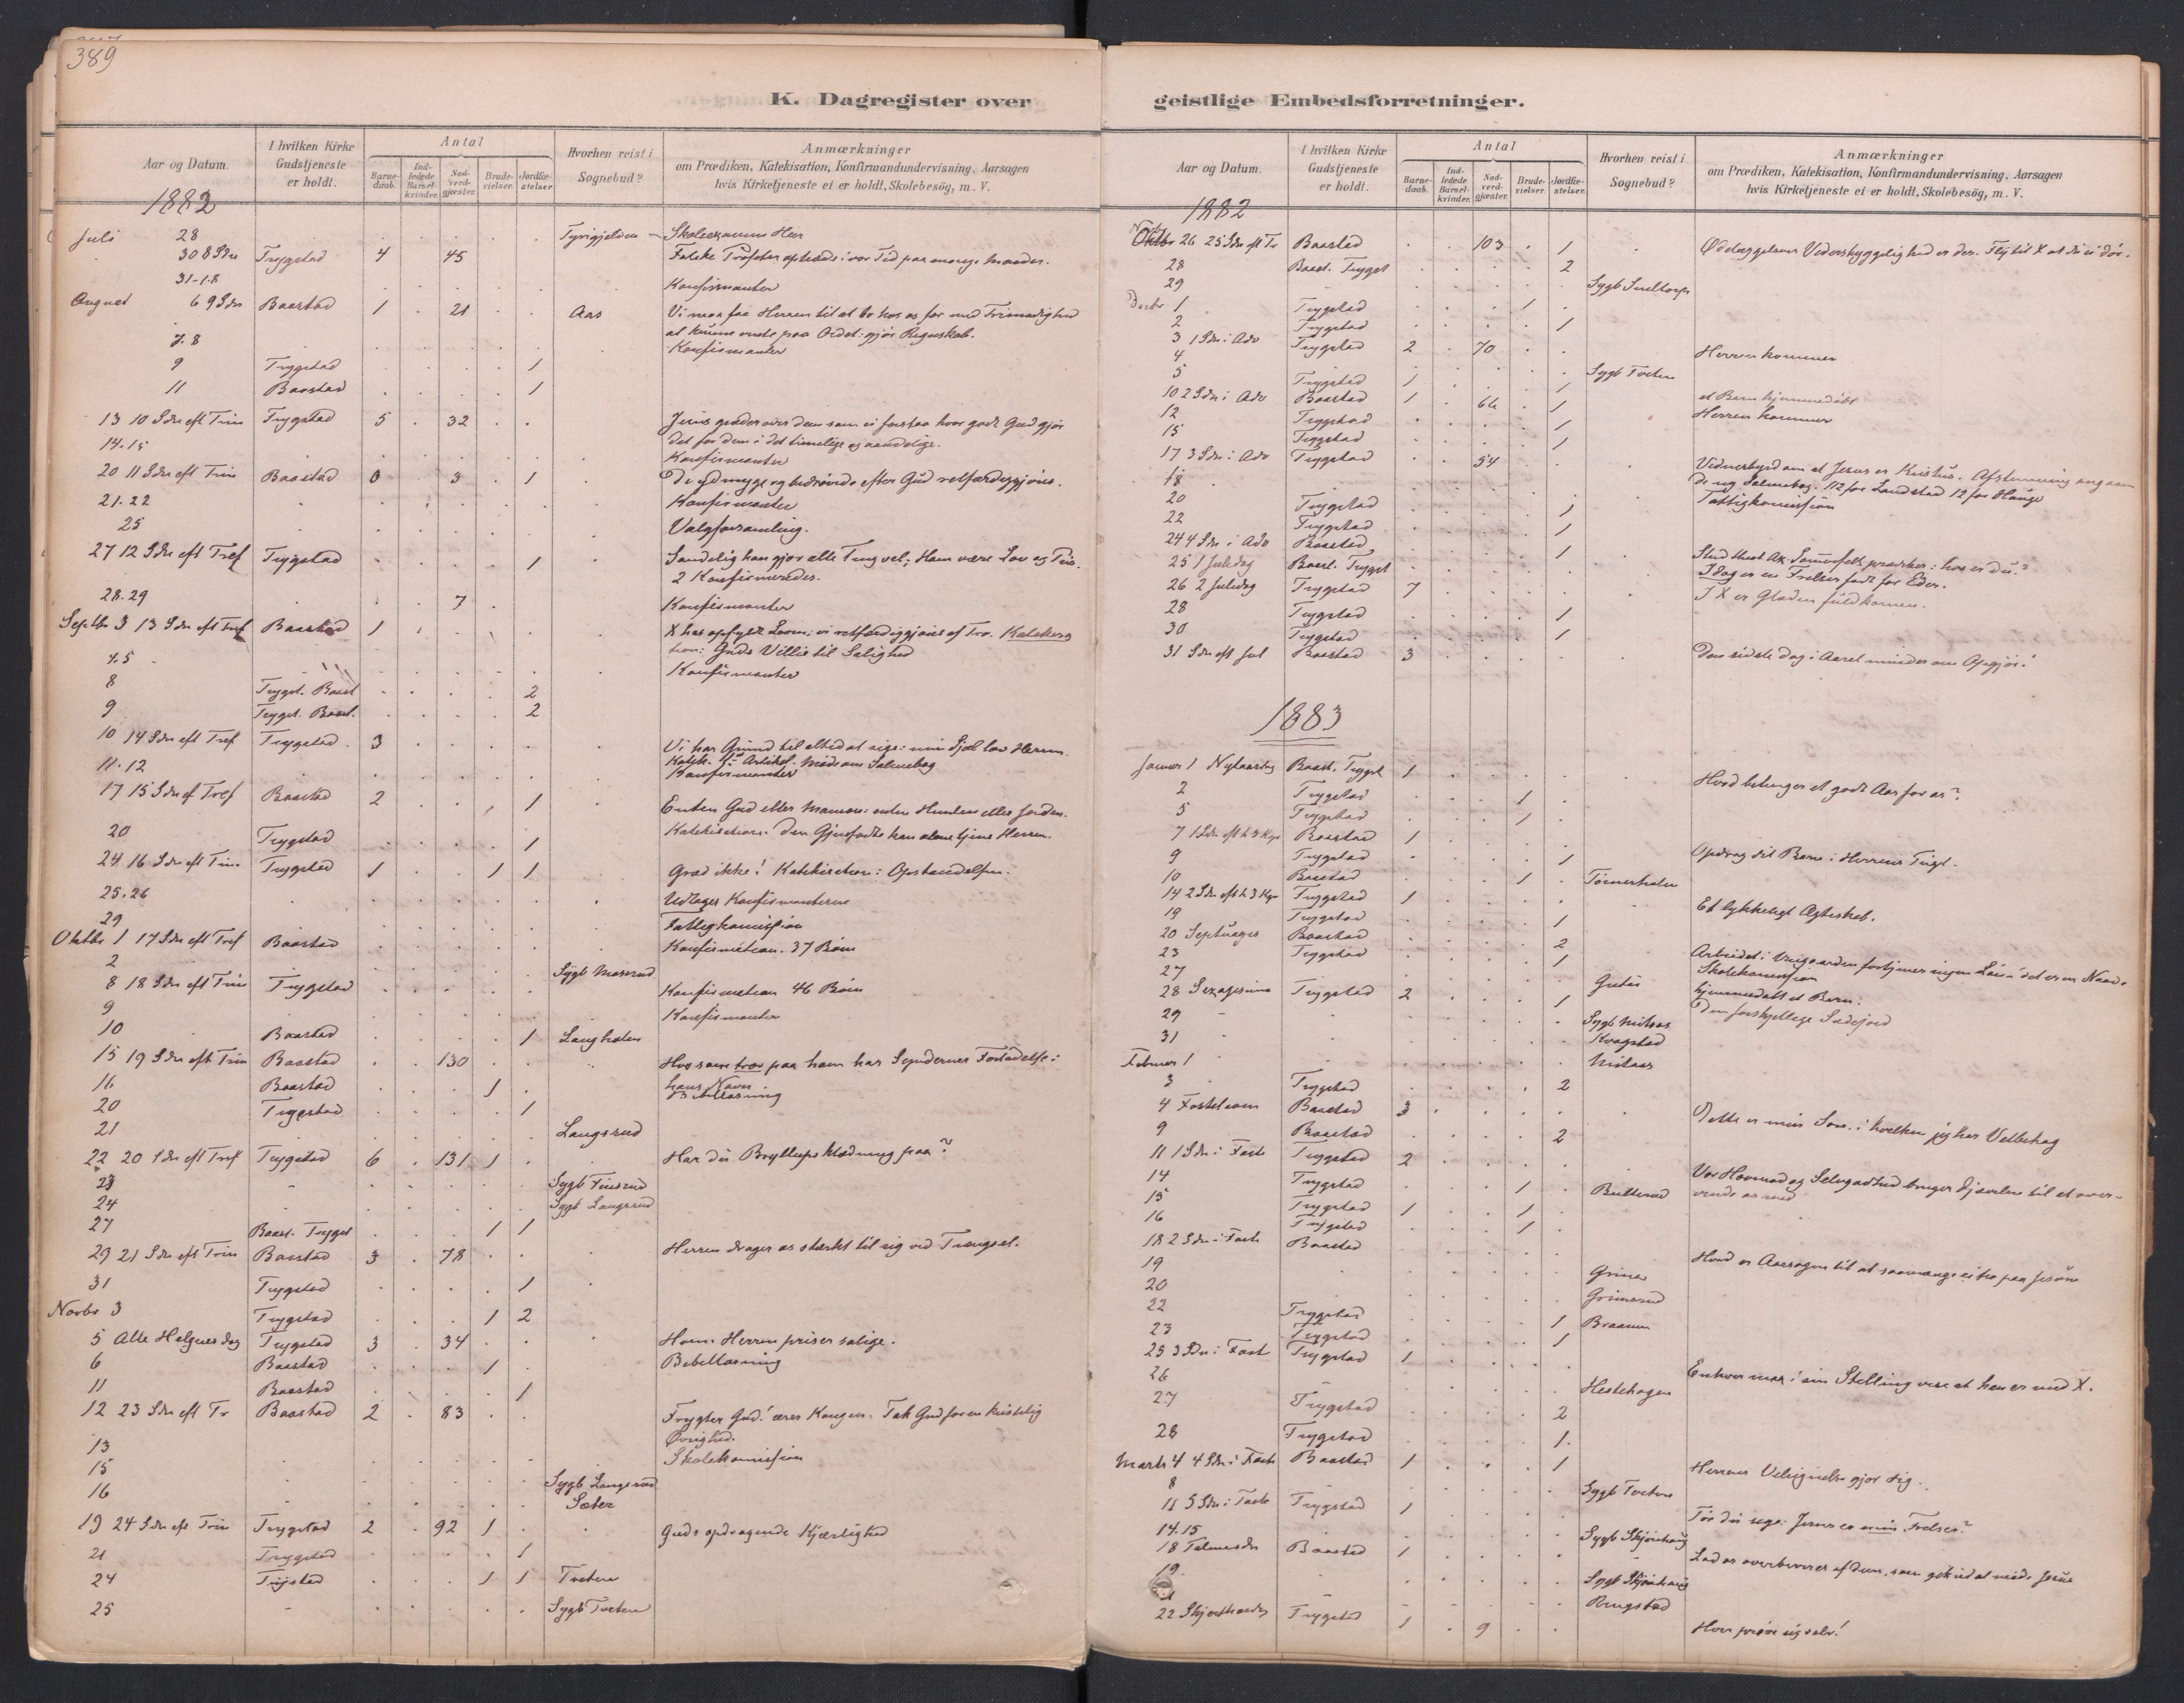 389
K. Dagregister over
Aar og Datum.
I hvilken Kirke Gudstjeneste er holdt.
Antal
Barne-daab.
Ind-ledede Barsel-kvinder.
Nad-verd-gjester.
Brude-vielser.
Jordfæ-stelser
Hvorhen reist i Sognebud?
Anmærkninger
om Prædiken, Katekisation, Konfirmandundervisning, Aarsagen
hvis Kirketjeneste ei er holdt, Skolebesög, m. V.
1882
Juli 28 Skoleexamen
30 8 Sdn Trygstad 4 45
31-1.8 Konfirmanter
August 6 9 Sdn Baastad 1 21 Aas Vi maa faa Herren til at bo hos os for med Frimodighed
at kunne vente paa Ordet: gjør Regnskab.
7.8 Konfirmanter
9 Trygstad 1
11 Baastad 1
13 10 Sdn eft Trin Trygstad 5 32 Jesus græder over dem som ei forstaa hvor godt Gud gjør
det for dem i det timelige og aandelige.
14.15 Konfirmanter
20 11 Sdn eft Trin Baastad 0 3 1 De ydmyge og bedrøvede efter Gud retfærdiggjøres.
21.22 Konfirmanter
25 Valgforsamling.
27 12 Sdn eft Tref Trygstad 1 Sandelig han gjør alle Ting vel; Ham være Lov og Pris.
2 Konfirmeredes.
28.29 7 Konfirmanter
Septbr 3 13 Sdn eft Tref Baastad 1 X har opfyldt Loven; vi retfærdiggjøres af Tro. Katekisa
tion: Guds Villie til Salighed
4.5 Konfirmanter
8 Trygst. Baast 2
9 Trygst. Baast. 2
10 14 Sdn eft Tref Trygstad 3 Vi har Grund til altid at sige: min Sjæl lov Herren.
Katek. Artikel. Møde om Salmebog
11.12 Konfirmanter
17 15 Sdn ef Tref Baastad 2 1 Enten Gud eller Mamon: enten Himlen eller Jorden.
Katekisation. Den Gjenfødte kan alene tjene Herren.
20 Trygstad 1
24 16 Sdn eft Trin Trygstad 1 1 1 Græd ikke! Katekisation: Opstandelsen.
25.26 Udtages Konfirmanterne
29 Fattigkomission
Oktbr 1 17 Sdn eft Tref Baastad Konfirmation. 37 Børn
2 Sygb Moserud
8 18 Sdn eft Trin Trygstad Konfirmation 46 Børn
9 Konfirmanter
10 Baastad 1 Langholen
15 19 Sdn eft Trin Baastad 130 Hvo som tror paa ham har Syndernes Forladelse i
hans Navn.
16 Baastad 1 Bibellæsning
20 Trygstad 1
21 Langsrud
22 20 Sdn eft Tref Trygstad 6 131 1 Har du Bryllupsklædning paa?
23 Sygb Finsrud
24 Sygb Langsrud
27 Baast. Trygst 1 1
29 21 Sdn eft Trin Baastad 3 78 Herren drager os stærkt til sig ved Trængsel.
31 Trygstad 1
Novbr 3 Trygstad 1 2
5 Alle Helgenes dag Trygstad 3 34 Hvem Herren priser salige.
6 Baastad 1 Bibellæsning
11 Baastad 1
12 23 Sdn eft Tr Baastad 2 83 Frygter Gud! ærer Kongen. Tak Gud for en kristelig
Øvrighed.
13 Skolekomission
15 Sygb Langsrud
16 Sæter
19 24 Sdn eft Trin Trygstad 2 92 1 Guds opdragende Kjærlighed
21 Trygstad 1
24 Trygstad 1 1 Tveten
25 Sygb Tveten
geistlige Embedsforretninger.
Aar og Datum.
I hvilken Kirke Gudstjeneste er holdt.
Antal
Barne-daab.
Ind-ledede Barsel-kvinder.
Nad-verd-gjester.
Brude-vielser.
Jordfæ-stelser
Hvorhen reist i Sognebud?
Anmærkninger
om Prædiken, Katekisation, Konfirmandundervisning, Aarsagen
hvis Kirketjeneste ei er holdt, Skolebesög, m. V.
1882
Nov 26 25 Sdn eft Tr Baastad 103 1 Ødelæggelsens Vederstyggelighed er der. Fly til X at du ei dør.
28 Baast. Trygst 2
29 Sygb
Decbr 1 Trygstad 1
2 Trygstad 1
3 1 Sdn i Adv Trygstad 2 70 Herren kommer
4 Sygb Tveten
5 Trygstad 1 1 et Barn hjemmedøbt
10 2 Sdn i Adv Baastad 1 64 1 Herren kommer
12 Trygstad 1
15 Trygstad 1
17 3 Sdn i Adv Trygstad 54 Vidnesbyrd om at Jesus er Kristus. Afstemning angaaen
de ny Salmebog. 12 for Landstad 12 for Hauge
18 Fattigkomission
20 Trygstad 1
22 Trygstad 1
24 4 Sdn i Adv Baastad 1 prædiker: hvo er du?
25 1 Juledag Baast. Trygst Idag er en Frelser født for Eder.
26 2 Juledag Trygstad 7 I X er Glæden fuldkommen.
28 Trygstad 1
30 Trygstad 1
31 Sdn eft Jul Baastad 3 Den sidste Dag i Aaret minder om Opgjør.
1883
Januar 1 Nytaarsdag Baast. Trygst 1 Hvad betinger et godt Aar for os?
2 Trygstad 1
5 Trygstad 1
7 1 Sdn eft h 3 Kge Baastad 1 Opdrag dit Barn i Herrens Tugt.
9 Trygstad 1
10 Baastad 1 Tømmerholen
14 2 Sdn eft h 3 Kge Trygstad 1 Et lykkeligt Ægteskab.
19 Trygstad 1
20 Septuages Baastad 2 Arbeidet i Vingaarden fortjener ingen Løn: det er en Naade
23 Trygstad 1 Skolekomission
27 hjemmedøbt et Barn.
28 Sexagesima Trygstad 2 1 Den forskjellige Sædejord
29 Sygb
31 Kragstad
Februar 1
3 Trygstad 2
4 Fastelavn Baastad 3 Dette er min Søn. i hvilken jeg har Velbehag
9 Baastad 2
11 1 Sdn i Faste Trygstad 2 Vor Hovmod og Selvgodhed bruger Djævelen til at over-
vinde os med
14 Trygstad 1
15 Trygstad 1 1
16 Trygstad 1
18 2 Sdn i Faste Baastad Hvad er Aarsagen til at saamange ei tro paa Jesum
19
20 Grimsrud
22 Trygstad 1 Braaum
23 Trygstad 1
25 3 Sdn i Fast Trygstad 1 Enhver maa i sin Stilling vise at han er med X.
26 Hestehagen
27 Trygstad 2
28 Trygstad 1
Marts 4 4 Sdn i Faste Baastad 1 1 Herrens Velsignelse gjør rig.
8 Sygb Tveten
11 5 Sdn i Faste Trygstad 1 Tør du sige: Jesus er min Frelser?
14.15 Sygb Skjønhaug
18 Palmesdn Baastad 1 Lad os overbevises af dem, som gik ud at møde Jesus
19 Sygb Skjønhaug
22 Skjærthorsdag Trygstad 1 9 Hver prøve sig selv!